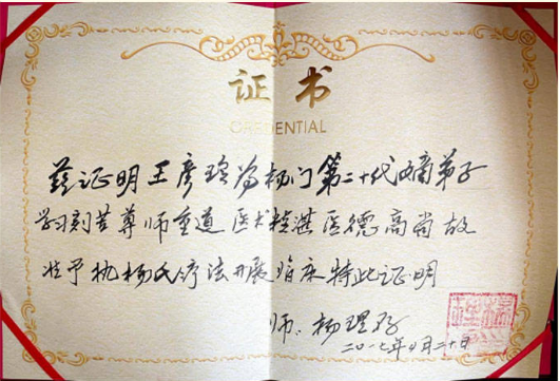 证书
CREDENTIAL
兹证明王彦玲为杨门第二十代嫡弟子
学习刻苦尊师重道医术精湛医德高尚故
准予执杨氏疗法开展临床特此证明
师:杨理存
二〇一七年月二十日